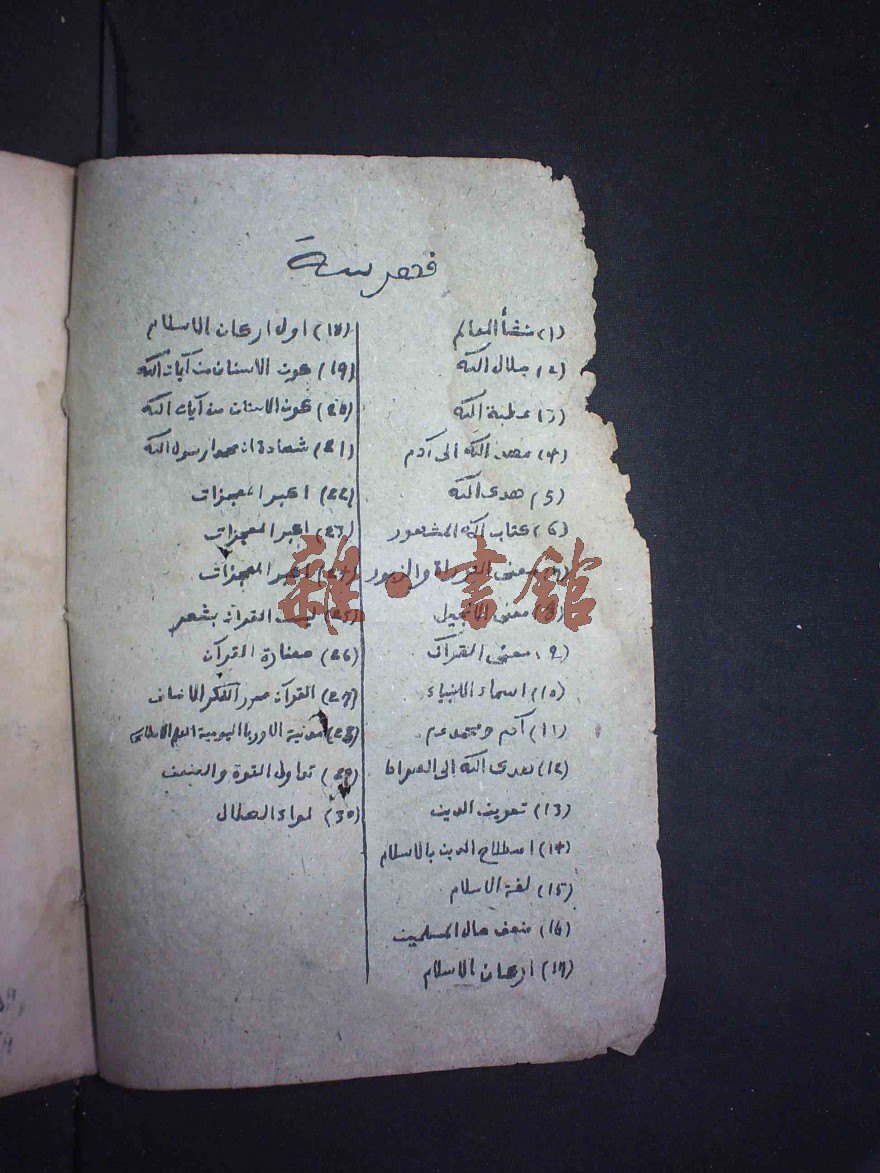 فهرسة
(1) منشأ العالم
(2) جلال الله
(3) عظمة الله
(4) عهد الله الى آدم
(5) هدى الله
(6) كتاب الله المشهور
(7) معنى التوراة والزبور
(8) معنى الانجيل
(9) معنى القرآن
(10) اسماء الانبياء
(11) آدم ومحمد عم
(12) هدى الله الى الصراط
(13) تعريف الدين
(14) اصطلاح الدين بالاسلام
(15) لغة الاسلام
(16) ضعف حال المسلمين
(17) اركان الاسلام
(18) اول اركان الاسلام
(19) كون الانسان من آيات الله
(20) كون الانسان من آيات الله
(21) شهادة ان محمدا رسول الله
(22) اكبر المعجزات
(23) اكبر المعجزات
(24) اكبر المعجزات
(25) ليست القرآن بشعر
(26) القرآن
(27) القرآن الفكر الانسان
(28) مدنية الاوربا اليومية الاسلامى
(29) تداول القوة والضعف
(30) لواء الهلال
雜·書館